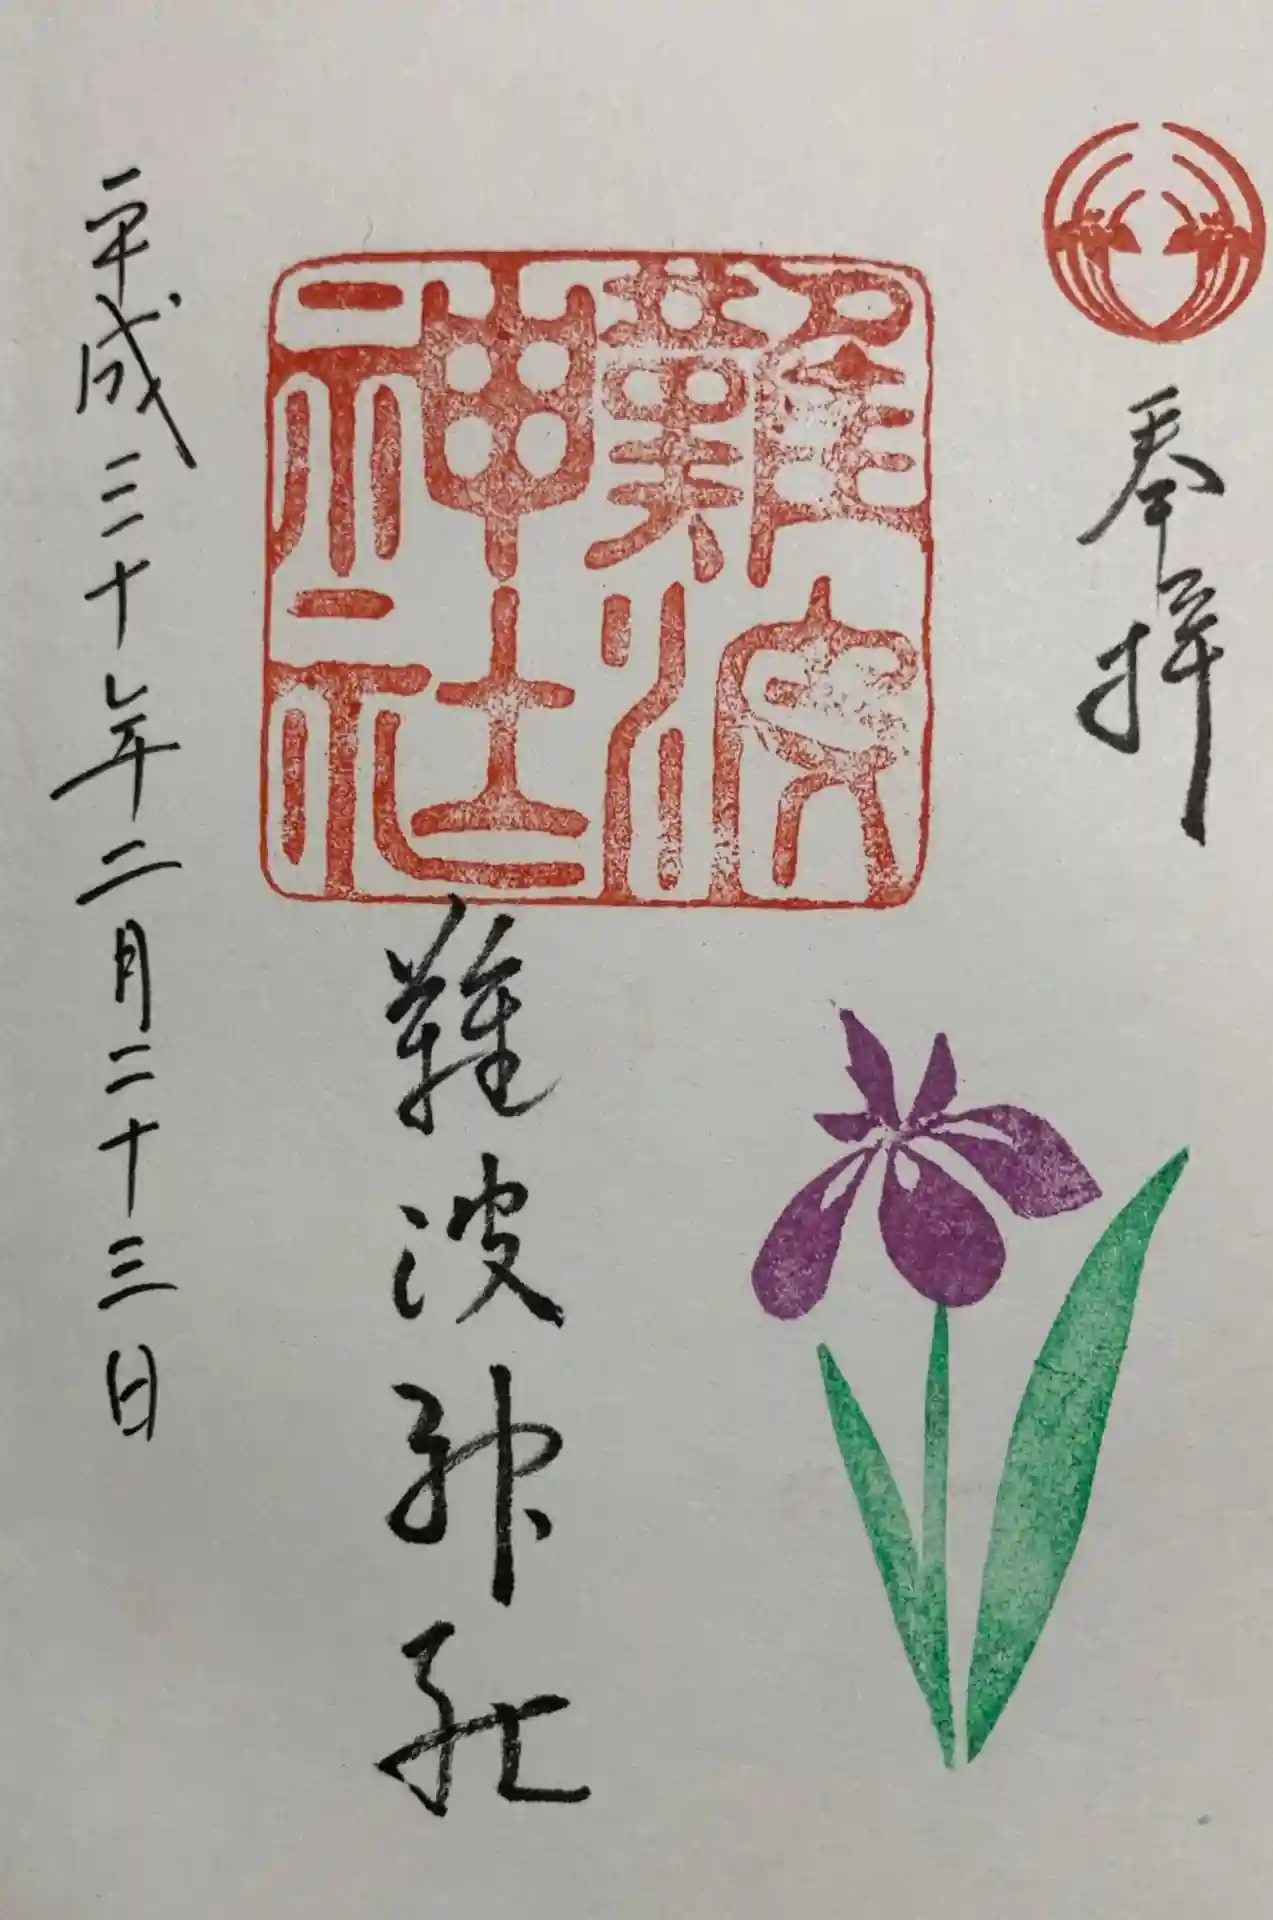 奉拝
難波神社
難波神社
平成三十年二月二十三日